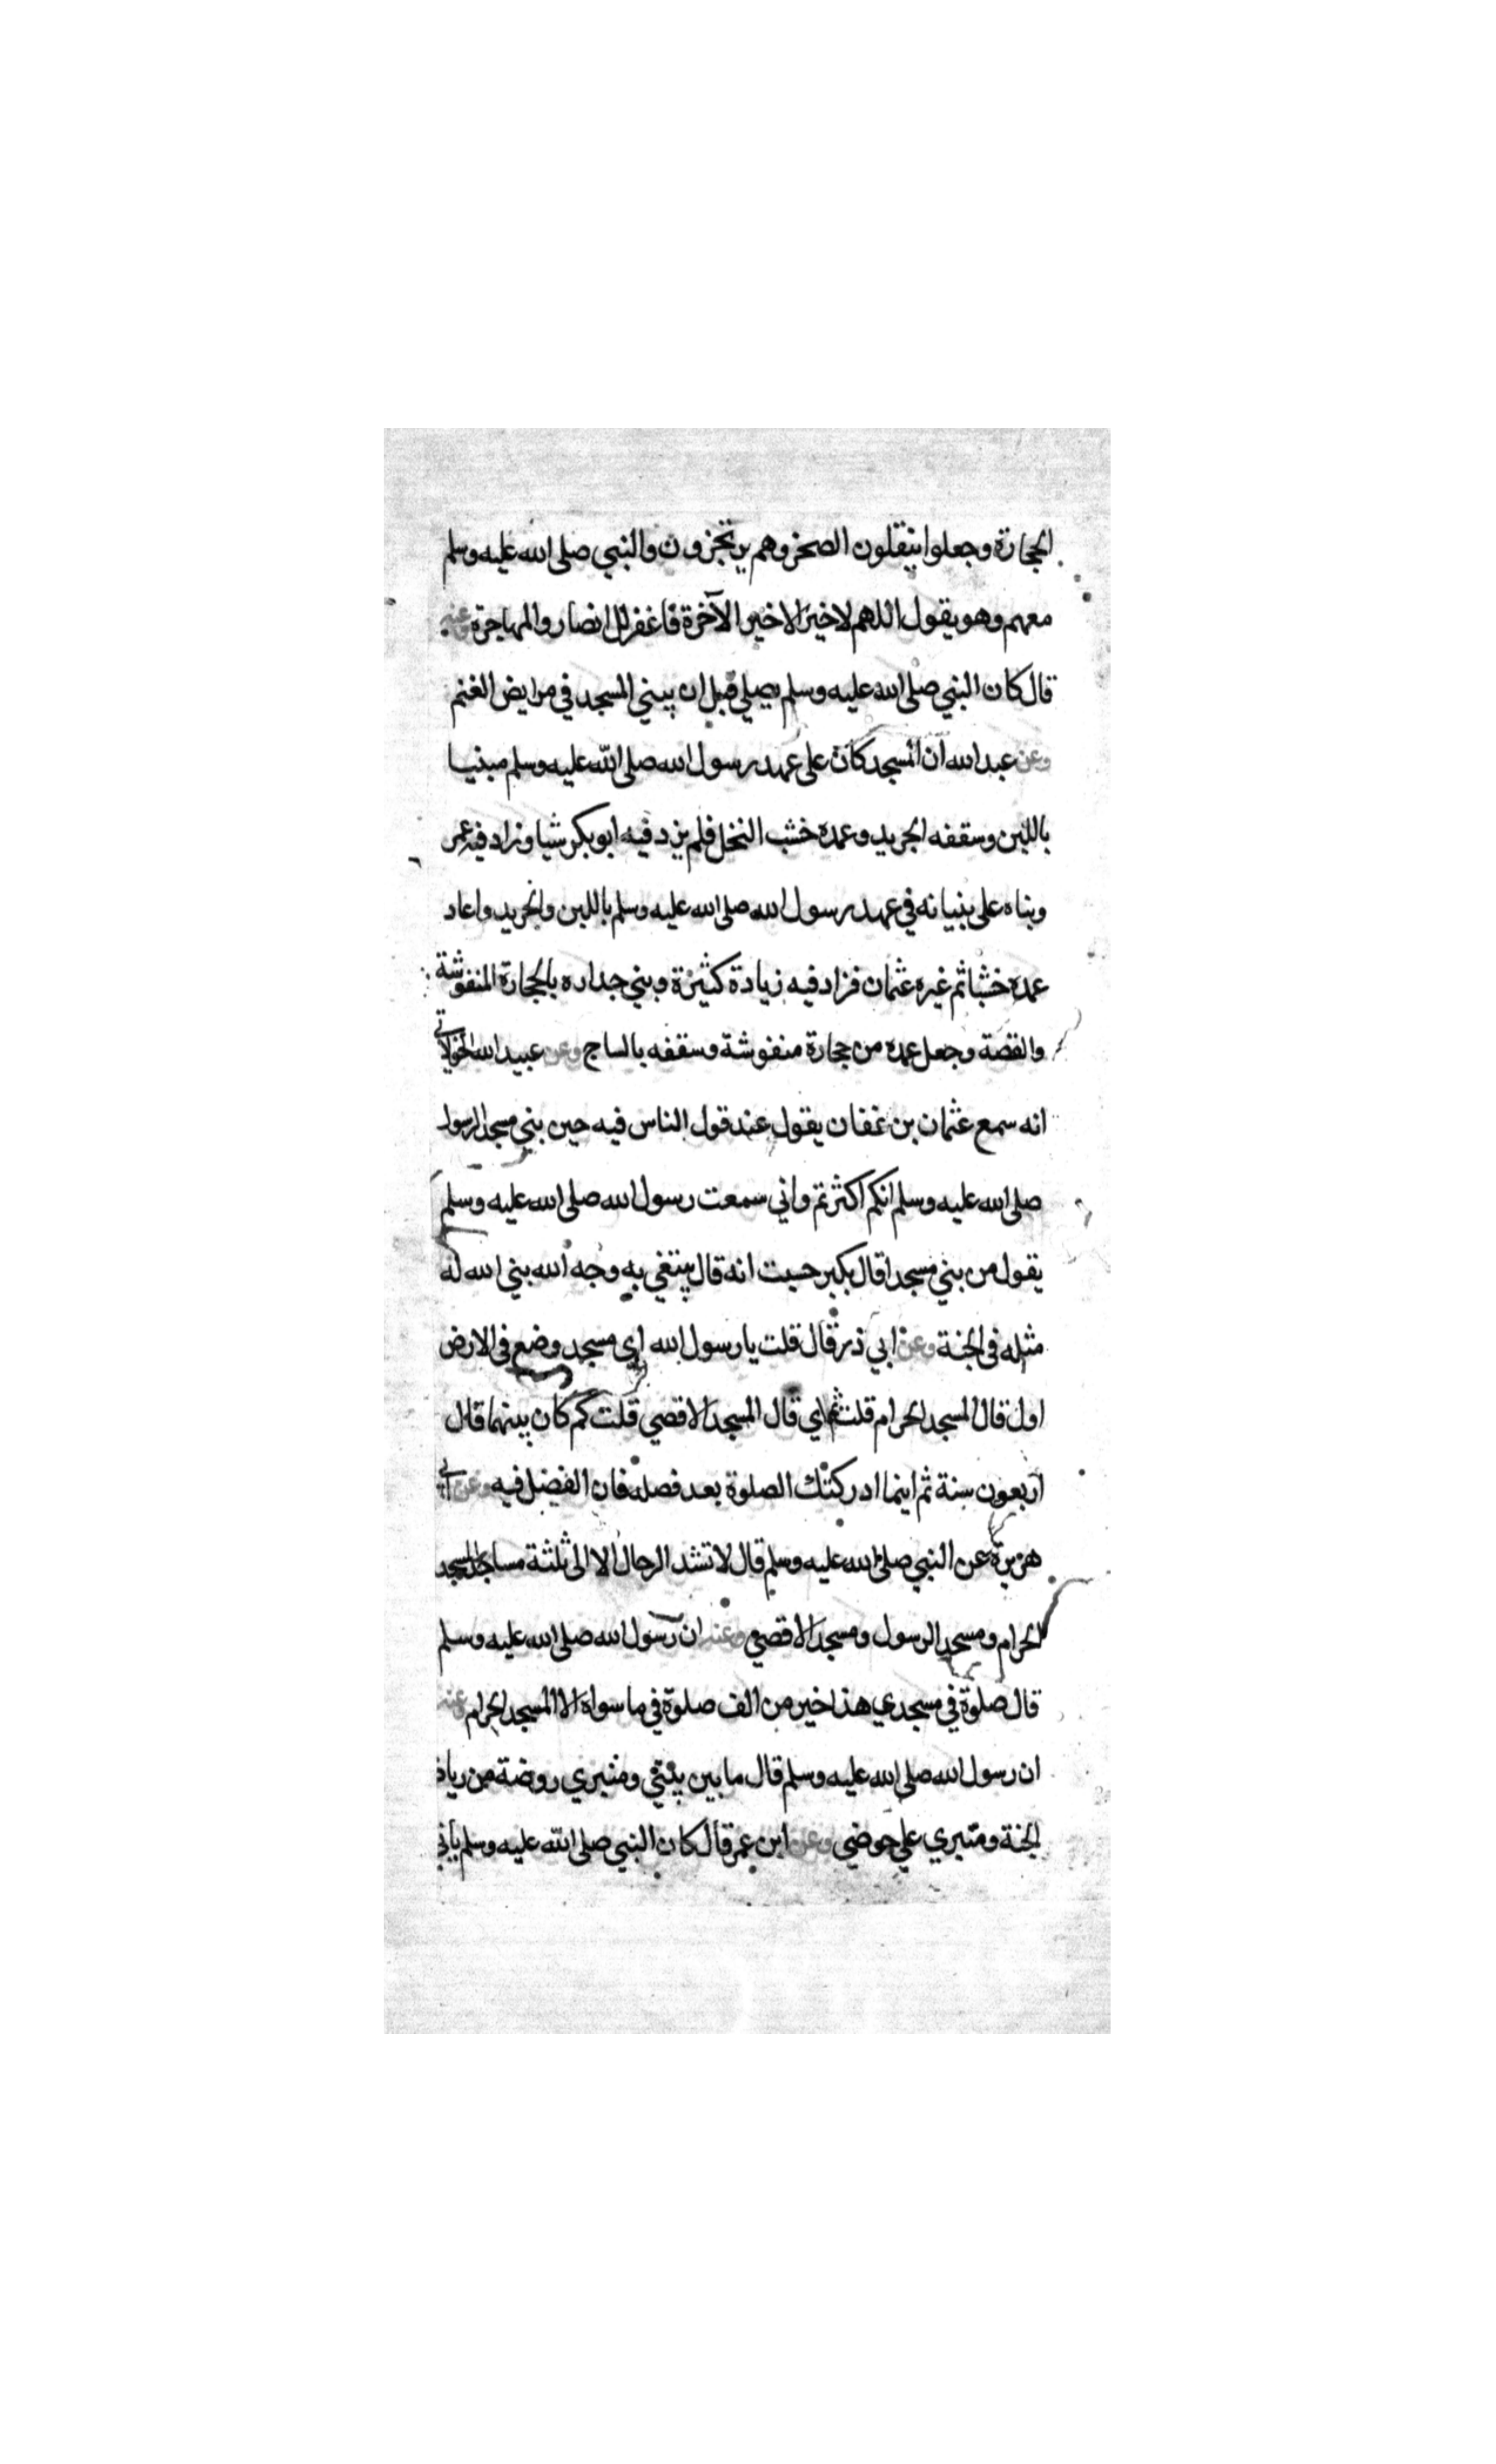 الحجارة وجعلوا ينقلون الصخر وهم يرتجزون والنبي صلى الله عليه وسلم
معهم وهو يقول اللهم لا خير الا خير الآخرة فاغفر للانصار والمهاجرة وعنه
قال كان النبي صلى الله عليه وسلم يصلي قبل ان يبني المسجد في مرابض الغنم
وعن عبد الله ان المسجد كان على عهد رسول الله صلى الله عليه وسلم مبنيا
باللبن وسقفه الجريد وعمده خشب النخل فلم يزد فيه ابو بكر شيا وزاد فيه عمر
وبناه على بنيانه في عهد رسول الله صلى الله عليه وسلم باللبن والجريد واعاد
عمده خشبا ثم غيره عثمان فزاد فيه زيادة كثيرة وبني جداره بالحجارة المنقوشة
والقصة وجعل عمده من حجارة منقوشة وسقفه بالساج وعن عبيد الله الخولاني
انه سمع عثمان بن عفان يقول عند قول الناس فيه حين بني مسجد الرسول
صلى الله عليه وسلم انكم اكثرتم واني سمعت رسول الله صلى الله عليه وسلم
يقول من بني مسجدا قال بكير حسبت انه قال يبتغي به وجه الله بني الله له
مثله في الجنة وعن ابي ذر قال قلت يا رسول الله اي مسجد وضع في الارض
اول قال المسجد الحرام قلت ثم اي قال المسجد الاقصي قلت كم كان بينهما قال
اربعون سنة ثم اينما ادركتك الصلوة بعد فصله فان الفضل فيه وعن ابي
هريرة عن النبي صلى الله عليه وسلم قال لا تشد الرحال الا الى ثلثة مساجد المسجد
الحرام ومسجد الرسول ومسجد الاقصي وعنه ان رسول الله صلى الله عليه وسلم
قال صلوة في مسجدي هذا خير من الف صلوة في ما سواه الا المسجد الحرام وعنه
ان رسول الله صلى الله عليه وسلم قال ما بين بيتي ومنبري روضة من رياض
الجنة ومنبري علي حوضي وعن ابن عمر قال كان النبي صلى الله عليه وسلم ياتي